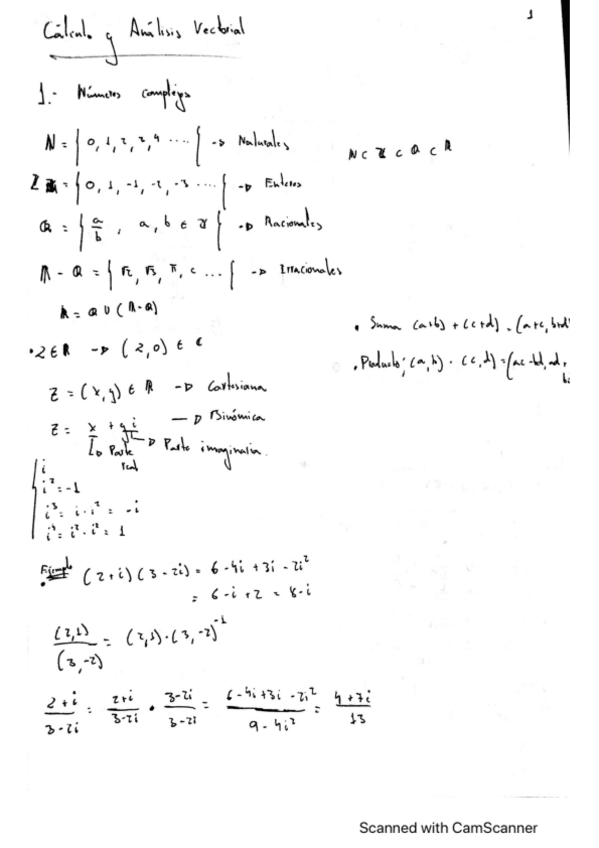 1
Cálculo y Análisis Vectorial
1.- Números complejos
N = { 0, 1, 2, 3, 4 .... { → Naturales
N ⊂ Z ⊂ Q ⊂ R
Z = { 0, 1, -1, -2, -3 .... { → Enteros
Q = { a/b , a, b ∈ Z { → Racionales
R - Q = { √2, √3, π, e ... { → Irracionales
R = Q ∪ (R-Q)
• Suma (a+b) + (c+d) = (a+c, b+d
• 2 ∈ R → (2,0) ∈ C
• Producto: (a,b) · (c,d) = (ac-bd, ad+
b
z = (x,y) ∈ R → Cartesiana
z = x + yi → Binómica
↳ Parte real
↳ Parte imaginaria.
i
i² = -1
i³ = i · i² = -i
i⁴ = i² · i² = 1
Ejemplo
• (2+i)(3-2i) = 6-4i+3i-2i²
= 6-i+2 = 8-i
(2,1)/(3,-2) = (2,1)·(3,-2)⁻¹
2+i/3-2i = 2+i/3-2i • 3-2i/3-2i = 6-4i+3i-2i²/9-4i² = 4+7i/13
Scanned with CamScanner